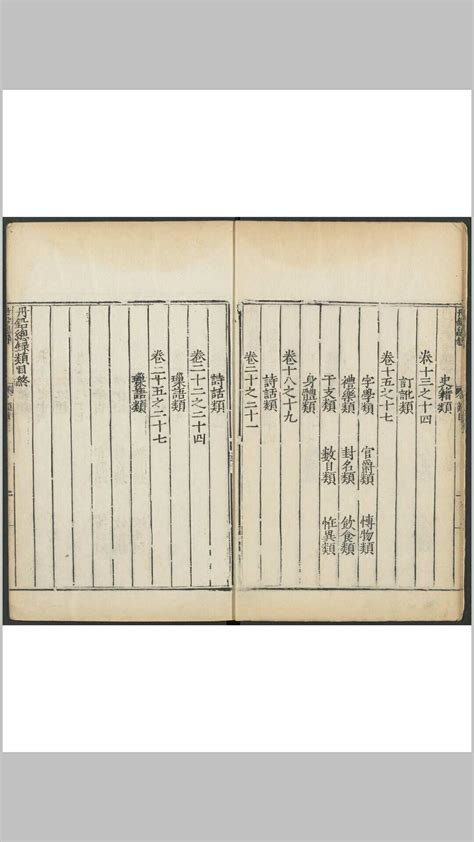 史籍類
卷十三之十四
訂訛類
卷十五之十七
字學類 官爵類 博物類
禮樂類 封名類 飲食類
干支類 數目類 恠異類
身體類
卷十八之十九
詩話類
卷二十之二十一
詩話類
卷二十二之二十四
瑣語類
卷二十五之二十七
瑣語類
丹鉛總錄類目終